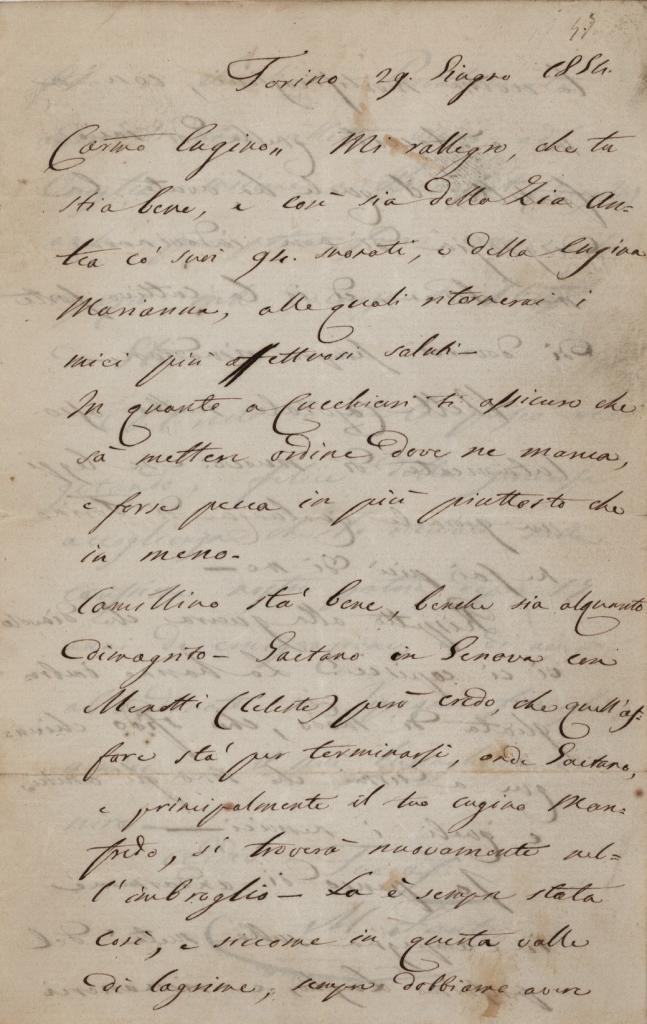 53
Torino 29. Giugno 1854.
Carmo Cugino,, Mi rallegro, che tu
stia bene, e così sia della Zia An=
tea co' suoi e della Cugina
Marianna, alle quali ritornerai i
miei più affettuosi saluti—
In quanto a Cucchiari ti assicuro che
sà mettere ordine dove ne manca,
e forse pecca in più piuttosto che
in meno—
Camillino stà bene, benche sia alquanto
dimagrito— Gaetano in Genova con
Menotti (Celeste) però credo, che quell'af=
fare stà per terminarsi, onde Gaetano,
e principalmente il tuo cugino Man=
fredo, si troverà nuovamente nel=
l'imbroglio— La è sempre stata
così, e siccome in questa valle
di lagrime, sempre dobbiamo avere